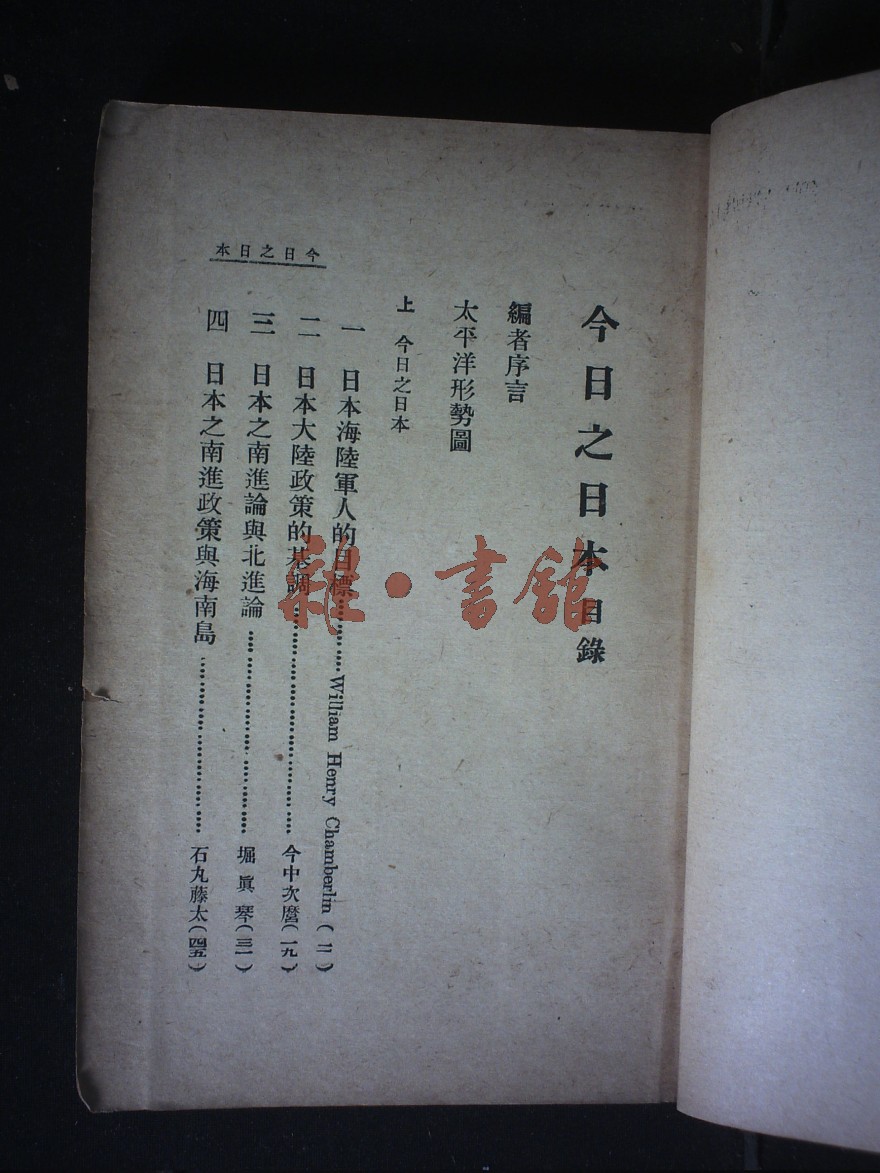 今日之日本 目錄
編者序言
太平洋形勢圖
上 今日之日本
一 日本海陸軍人的目標…………William Henry Chamberlin（ 一一 ）
二 日本大陸政策的基調…………今中次麿（ 一九 ）
三 日本之南進論與北進論…………堀眞琴（ 三一 ）
四 日本之南進政策與海南島…………石丸藤太（ 四五 ）
今日之日本
雜·書館